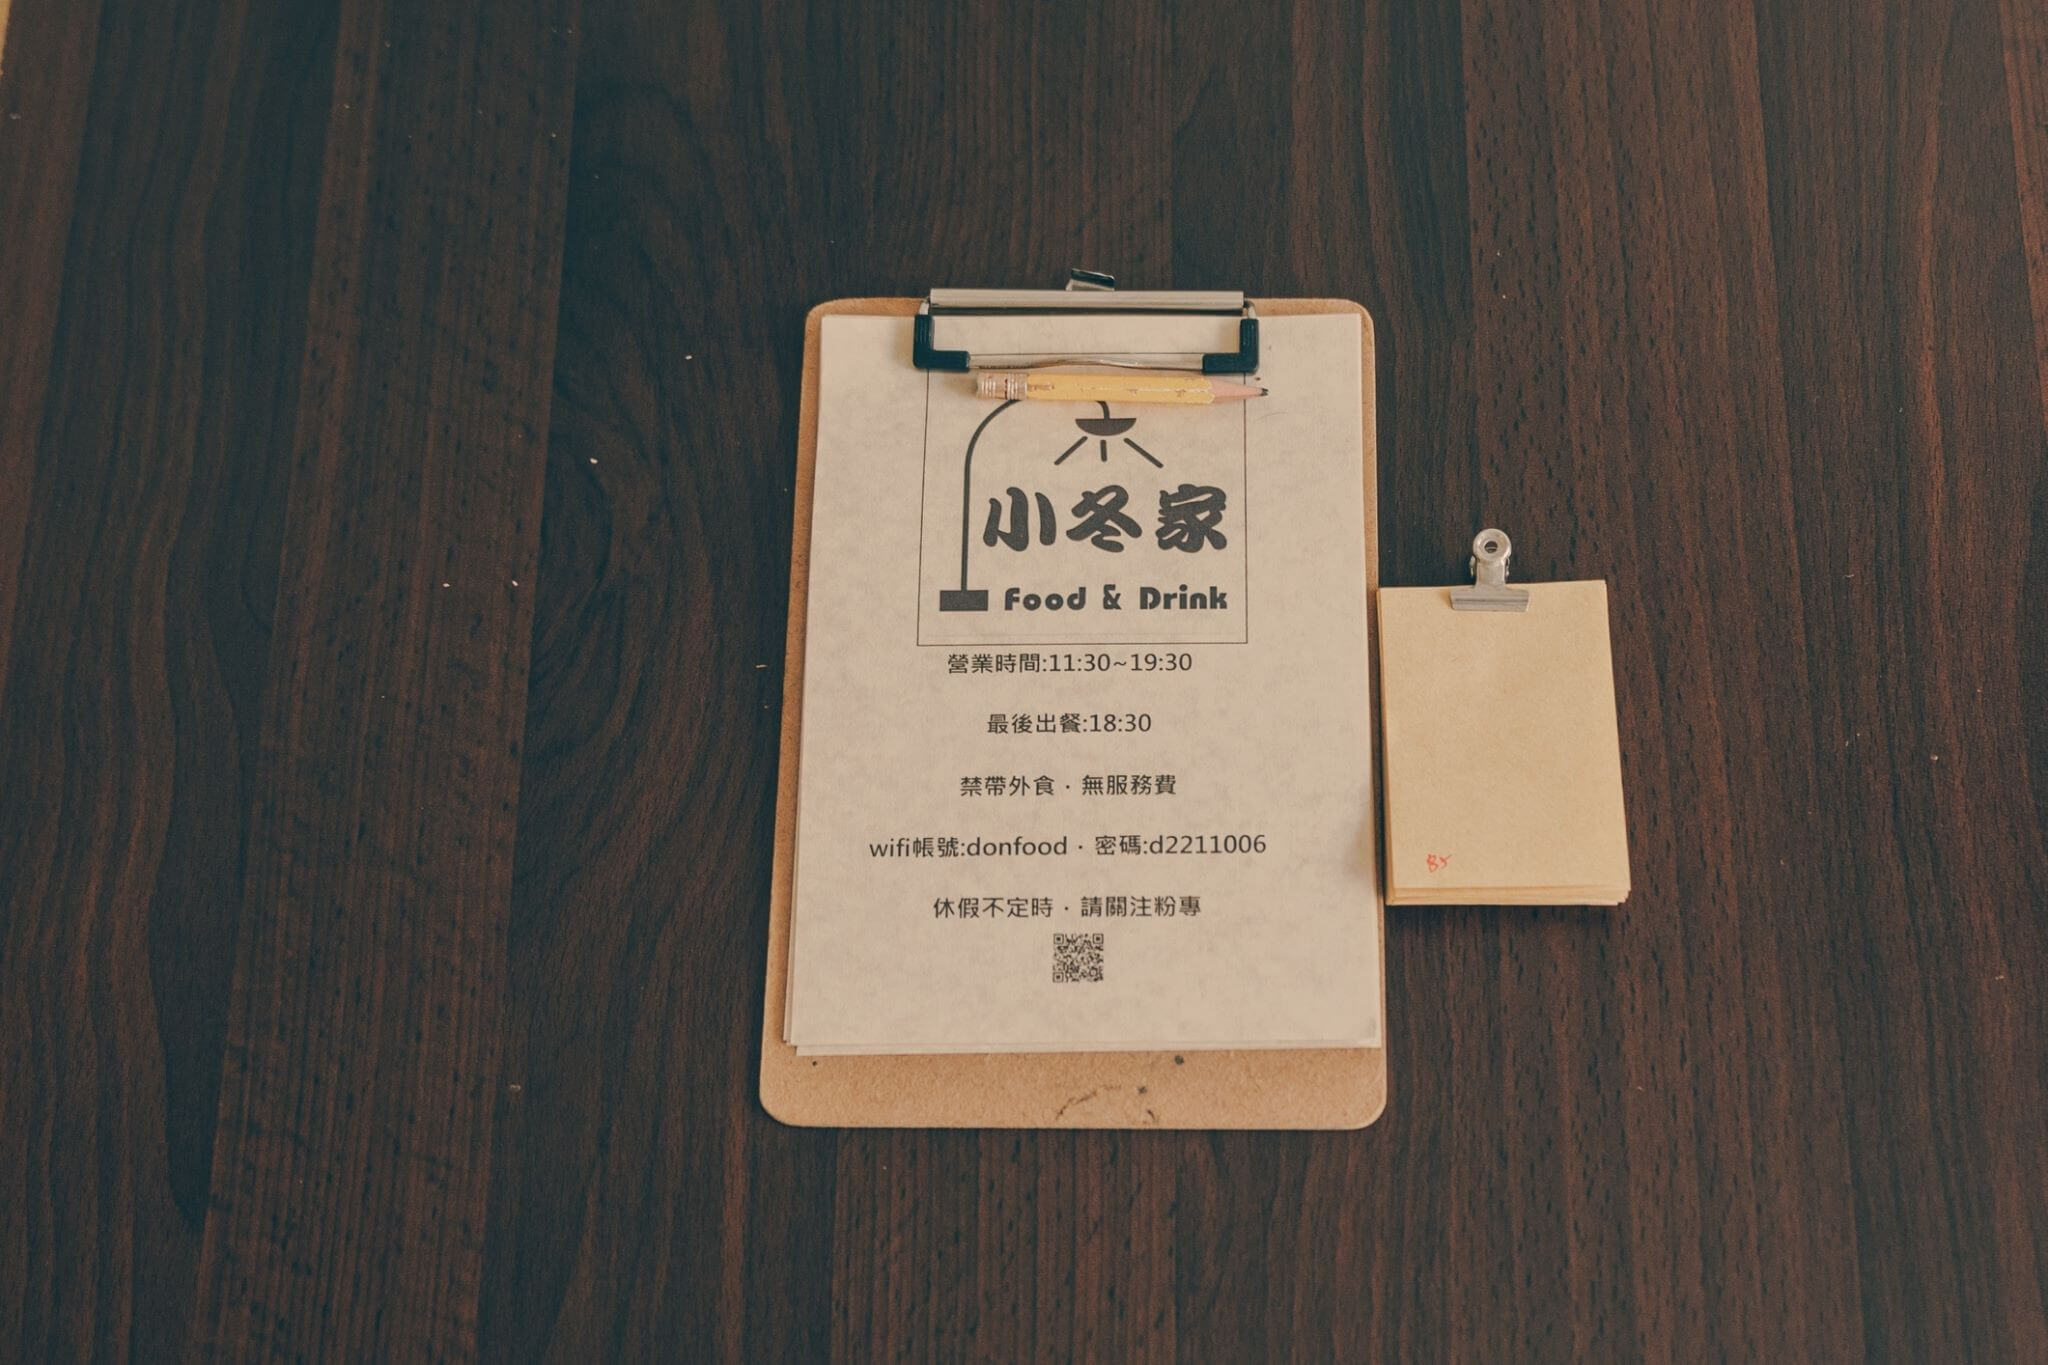 小冬家
Food & Drink
營業時間:11:30~19:30
最後出餐:18:30
禁帶外食・無服務費
wifi帳號:donfood・密碼:d2211006
休假不定時・請關注粉專